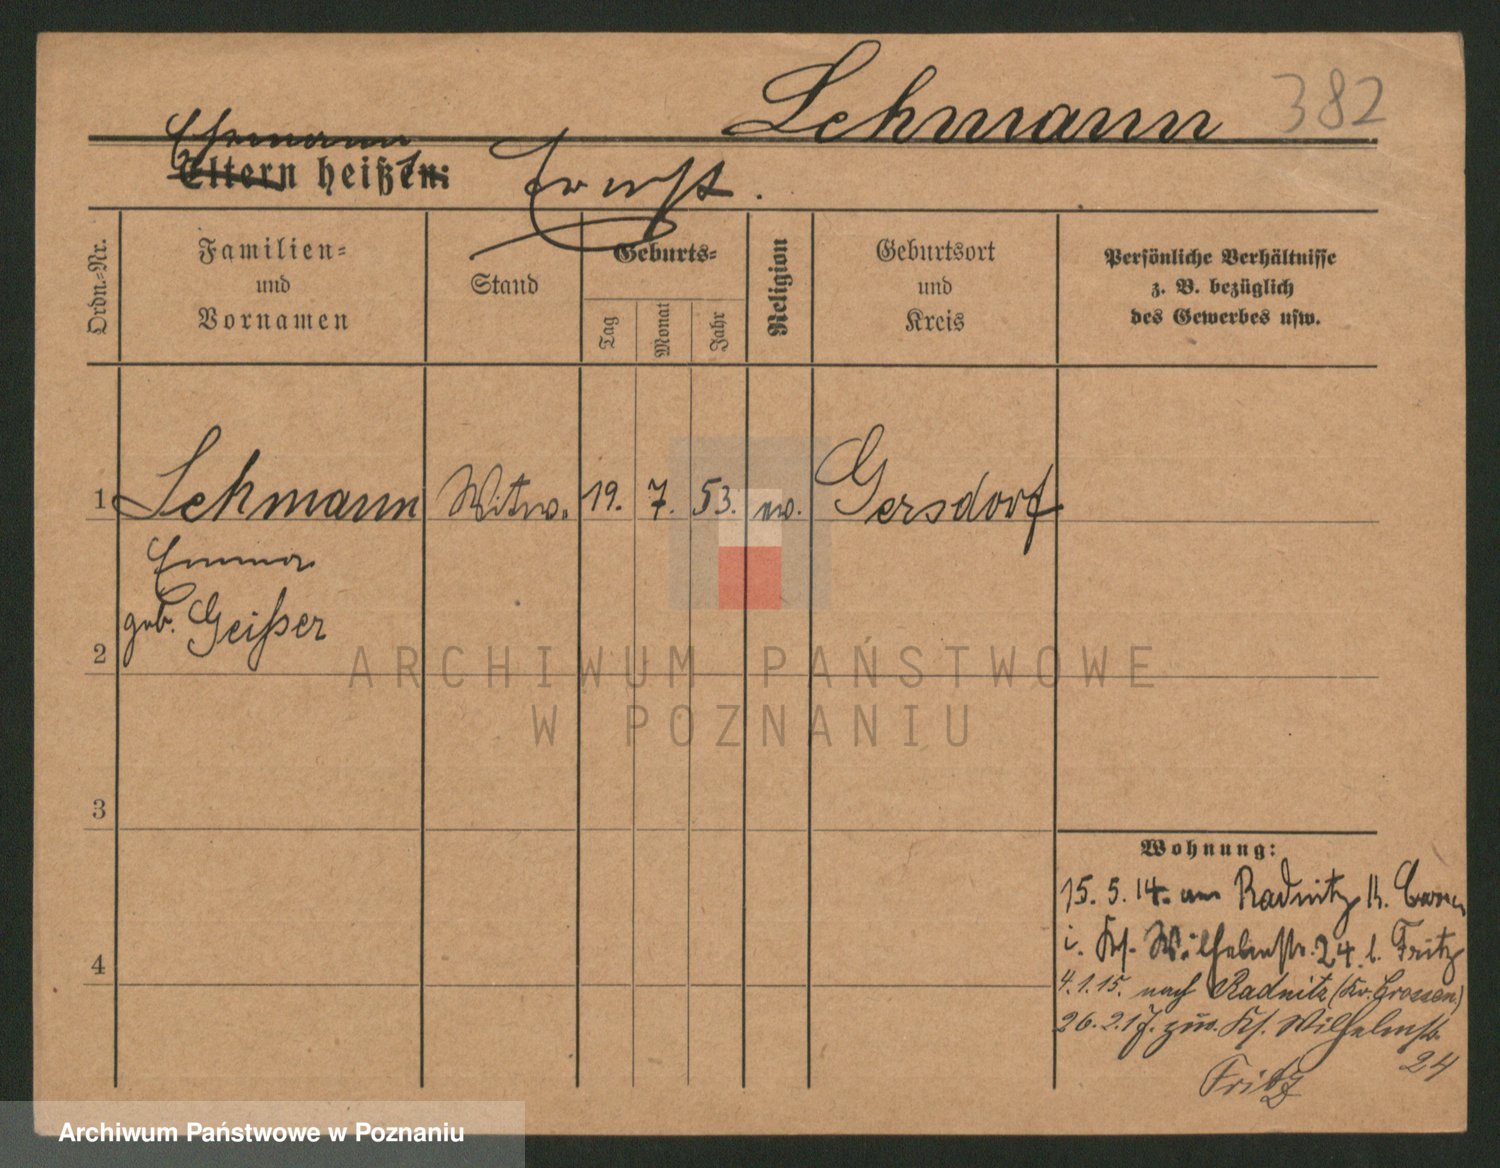 Lehmann 382
Ehemann
Eltern heißen: Ernst.
Ordn.-Nr.
Familien-
und
Vornamen
Stand
Geburts-
Tag
Monat
Jahr
Religion
Geburtsort
und
Kreis
Persönliche Verhältnisse
z. B. bezüglich
des Gewerbes usw.
1 Lehmann Witw. 19. 7. 53. ev. Gersdorf
Emma
geb. Geißer
2
ARCHIWUM PAŃSTWOWE
W POZNANIU
3
Wohnung:
15. 5. 14. aus Radnitz K.
i. Wilhelmstr. 24. b. Fritz
4
4. 1. 15. nach Radnitz (Kr. Crossen)
26. 2. 17. zur. Wilhelmstr.
24
Fritz
Archiwum Państwowe w Poznaniu